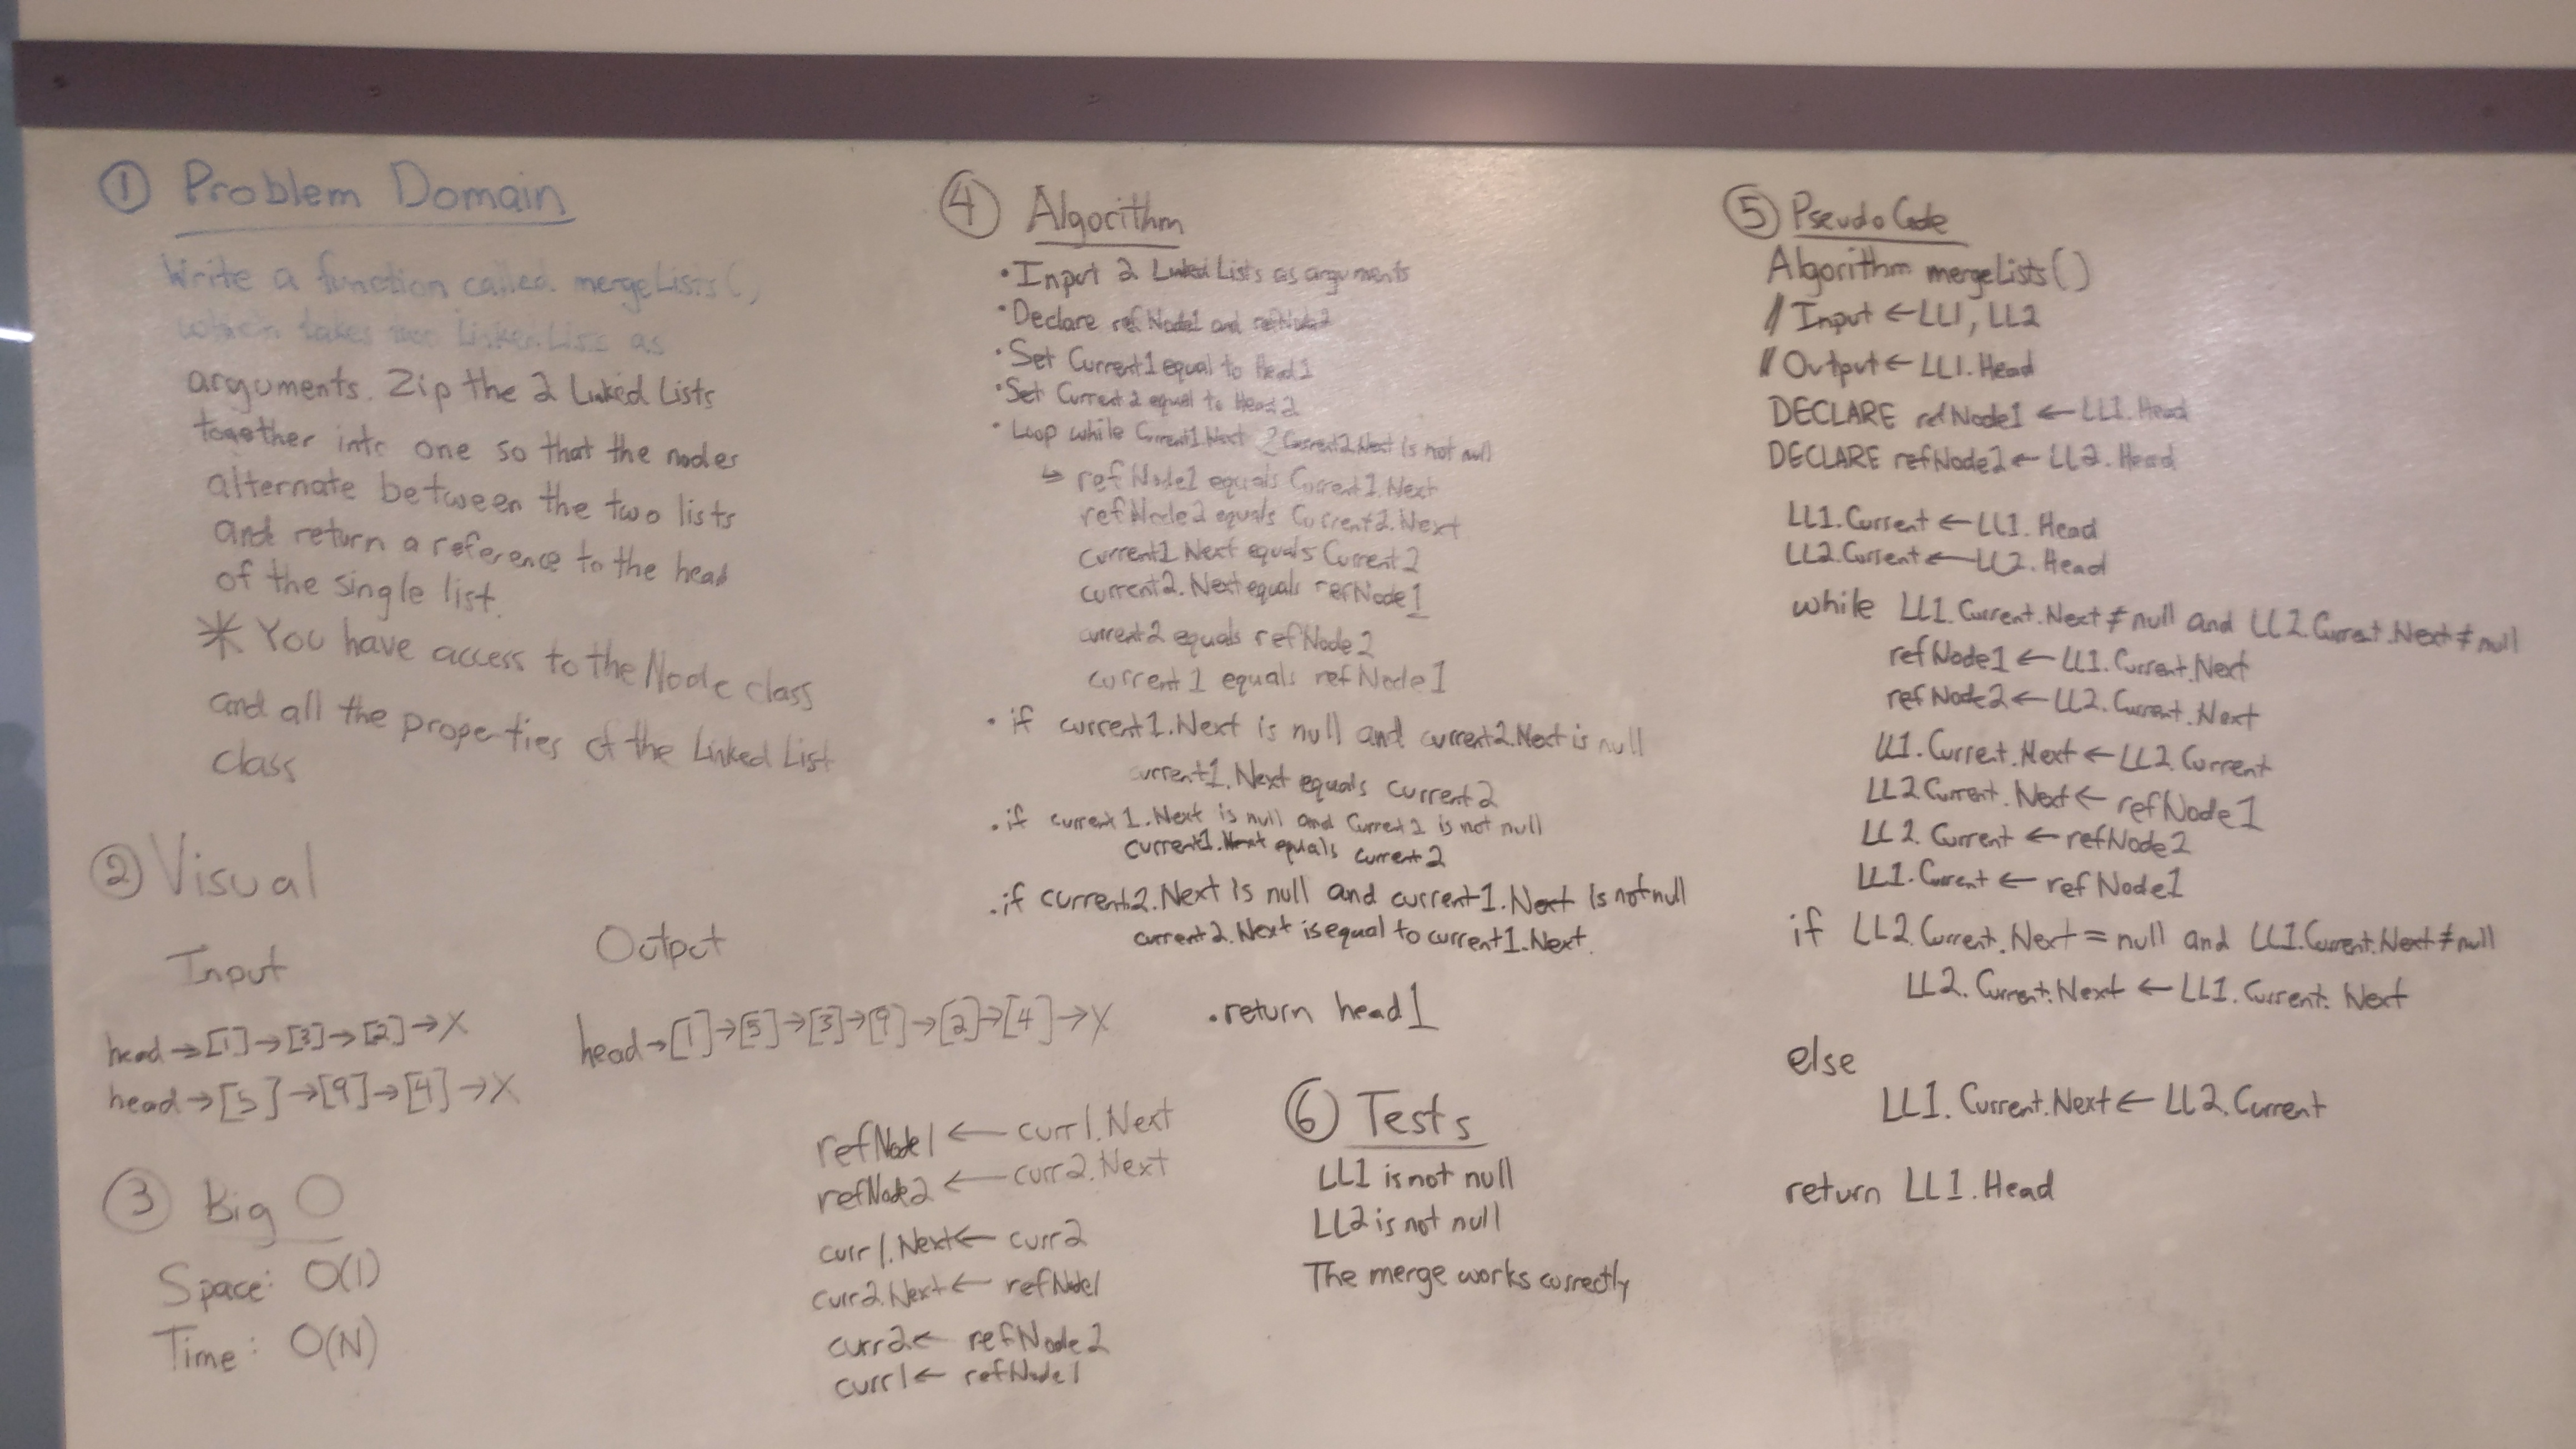 ① Problem Domain
Write a function called mergeLists()
which takes two Linked Lists as
arguments. Zip the 2 Linked Lists
together into one so that the nodes
alternate between the two lists
and return a reference to the head
of the single list.
* You have access to the Node class
and all the properties of the Linked List
class
② Visual
Input
head→[1]→[3]→[2]→X
head→[5]→[9]→[4]→X
Output
head→[1]→[5]→[3]→[9]→[2]→[4]→X
③ Big O
Space: O(1)
Time: O(N)
refNode1 ← curr1.Next
refNode2 ← curr2.Next
curr1.Next ← curr2
curr2.Next ← refNode1
curr2 ← refNode2
curr1 ← refNode1
④ Algorithm
• Input 2 Linked Lists as arguments
• Declare refNode1 and refNode2
• Set Current1 equal to Head1
• Set Current2 equal to Head2
• Loop while Current1.Next Current2.Next is not null
↳ refNode1 equals Current1.Next
refNode2 equals Current2.Next
current1.Next equals Current2
current2.Next equals refNode1
current2 equals refNode2
current1 equals refNode1
• if current1.Next is null and current2.Next is null
current1.Next equals current2
• if current1.Next is null and Current2 is not null
current1.Next equals current2
• if current2.Next is null and current1.Next is not null
current2.Next is equal to current1.Next.
• return head1
⑥ Tests
LL1 is not null
LL2 is not null
The merge works correctly
⑤ Pseudo Code
Algorithm mergeLists()
// Input ← LL1, LL2
// Output ← LL1.Head
DECLARE refNode1 ← LL1.Head
DECLARE refNode2 ← LL2.Head
LL1.Current ← LL1.Head
LL2.Current ← LL2.Head
while LL1.Current.Next ≠ null and LL2.Current.Next ≠ null
refNode1 ← LL1.Current.Next
refNode2 ← LL2.Current.Next
LL1.Current.Next ← LL2.Current
LL2.Current.Next ← refNode1
LL2.Current ← refNode2
LL1.Current ← refNode1
if LL2.Current.Next = null and LL1.Current.Next ≠ null
LL2.Current.Next ← LL1.Current.Next
else
LL1.Current.Next ← LL2.Current
return LL1.Head